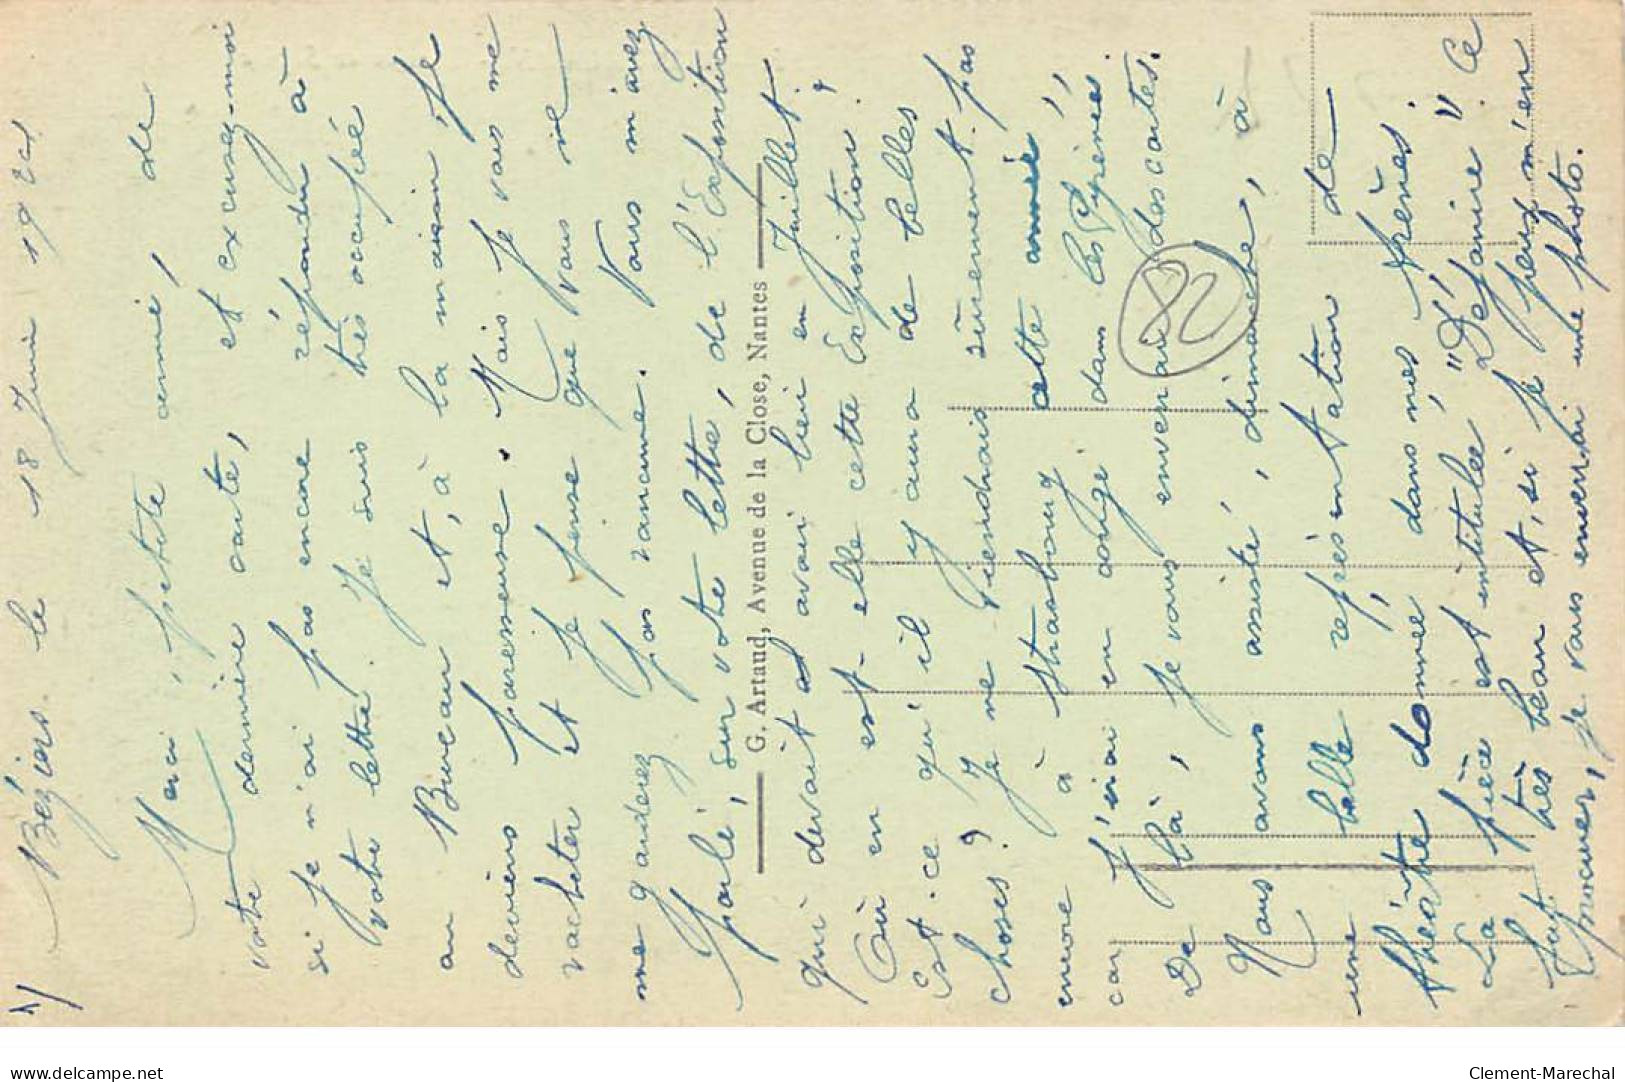 1/ Béziers. le 18 Juin 19
Merci, petite amie, de
votre dernière carte, et excusez-moi
si je n'ai pas encore répondu à
votre lettre. Je suis très occupée
au Bureau et, à la maison je
deviens paresseuse. Mais je vais me
racheter et je pense que vous ne
me garderez pas rancune. Vous m'avez
parlé, sur votre lettre, de l'Exposition
qui devait avoir lieu en Juillet.
Où en est-elle cette Exposition ?
Est-ce qu'il y aura de belles
choses ? Je ne viendrais sûrement pas
encore à Strasbourg cette année
car j'irai en congé dans les Pyrénées.
De là, je vous enverrai des cartes.
Nous avons assisté, dimanche, à
une belle représentation de
théâtre donnée dans mes Arènes.
La pièce est intitulée, "Déjanire". Ce
fut très beau et, si je peux m'en
procurer, je vous enverrai une photo.
G. Artaud, Avenue de la Close, Nantes
82
www.delcampe.net
Clement-Marechal